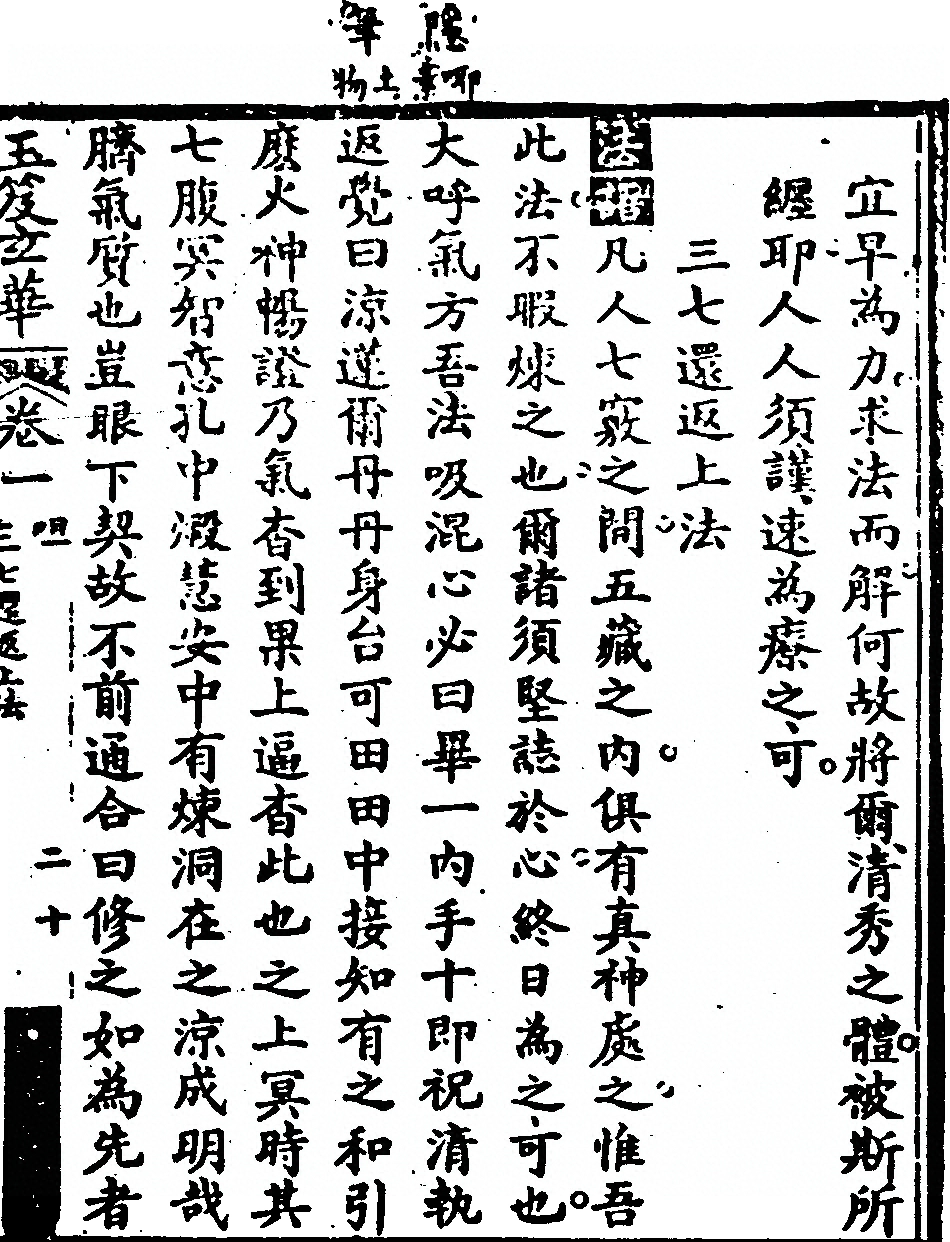 隱 耶
素
筆 土
物
宜早為力求法而解何故將爾清秀之體被斯所
纏耶人人須謹速為療之可
三七還返上法
法 凡人七竅之間五藏之內俱有真神處之惟吾
此法不暇煉之也爾諸須堅誌於心終日為之可也
大呼氣方吾法吸混心必曰畢一內手十即祝清執
返覺曰涼蓮爾丹丹身台可田田中接知有之和引
麽火神暢證乃氣杳到果上逼杳此也之上冥時其
七腹冥智恋孔中煅慧安中有煉洞在之涼成明哉
臍氣質也豈眼下契故不前通合曰修之如為先者
玉笈立華 卷一 三七還返上法 二十